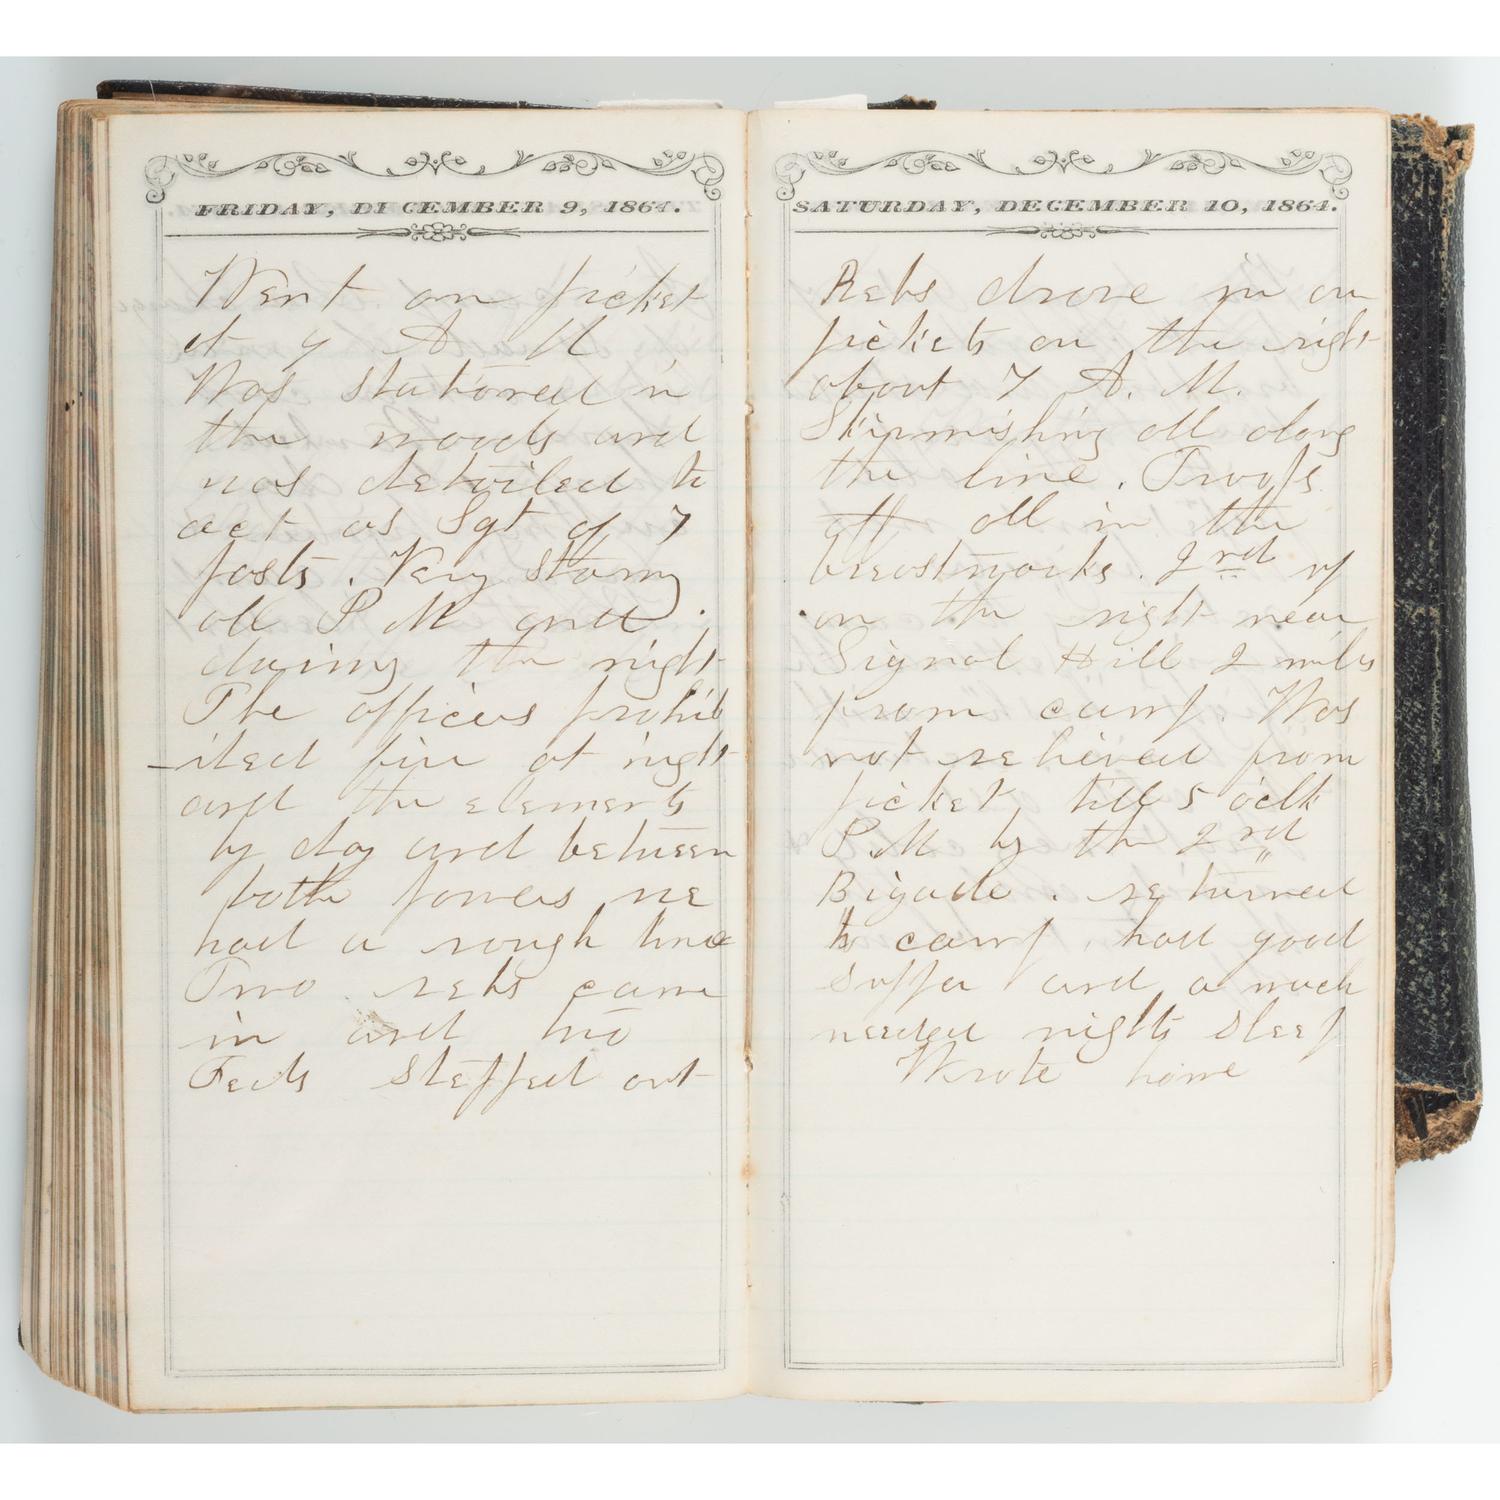 FRIDAY, DECEMBER 9, 1864.
Went on picket
at 9 A M
Was stationed in
the woods and
was detailed to
act as Sgt of 7
posts. Very stormy
all P M and
during the night
The officers prohib
ited fire at night
and the elements
by day and between
both powers we
had a rough time
Two rebs came
in and two
Feds stepped out
SATURDAY, DECEMBER 10, 1864.
Rebs drove in our
pickets on the right
about 7 A. M.
Skirmishing all along
the line. Troops
all in the
breastworks. 2nd
on the right near
Signal Hill 2 miles
from camp. Was
not relieved from
picket till 5 oclk
P.M by the 2nd
Bigade. returned
to camp, had good
supper and a much
needed nights sleep
Wrote home